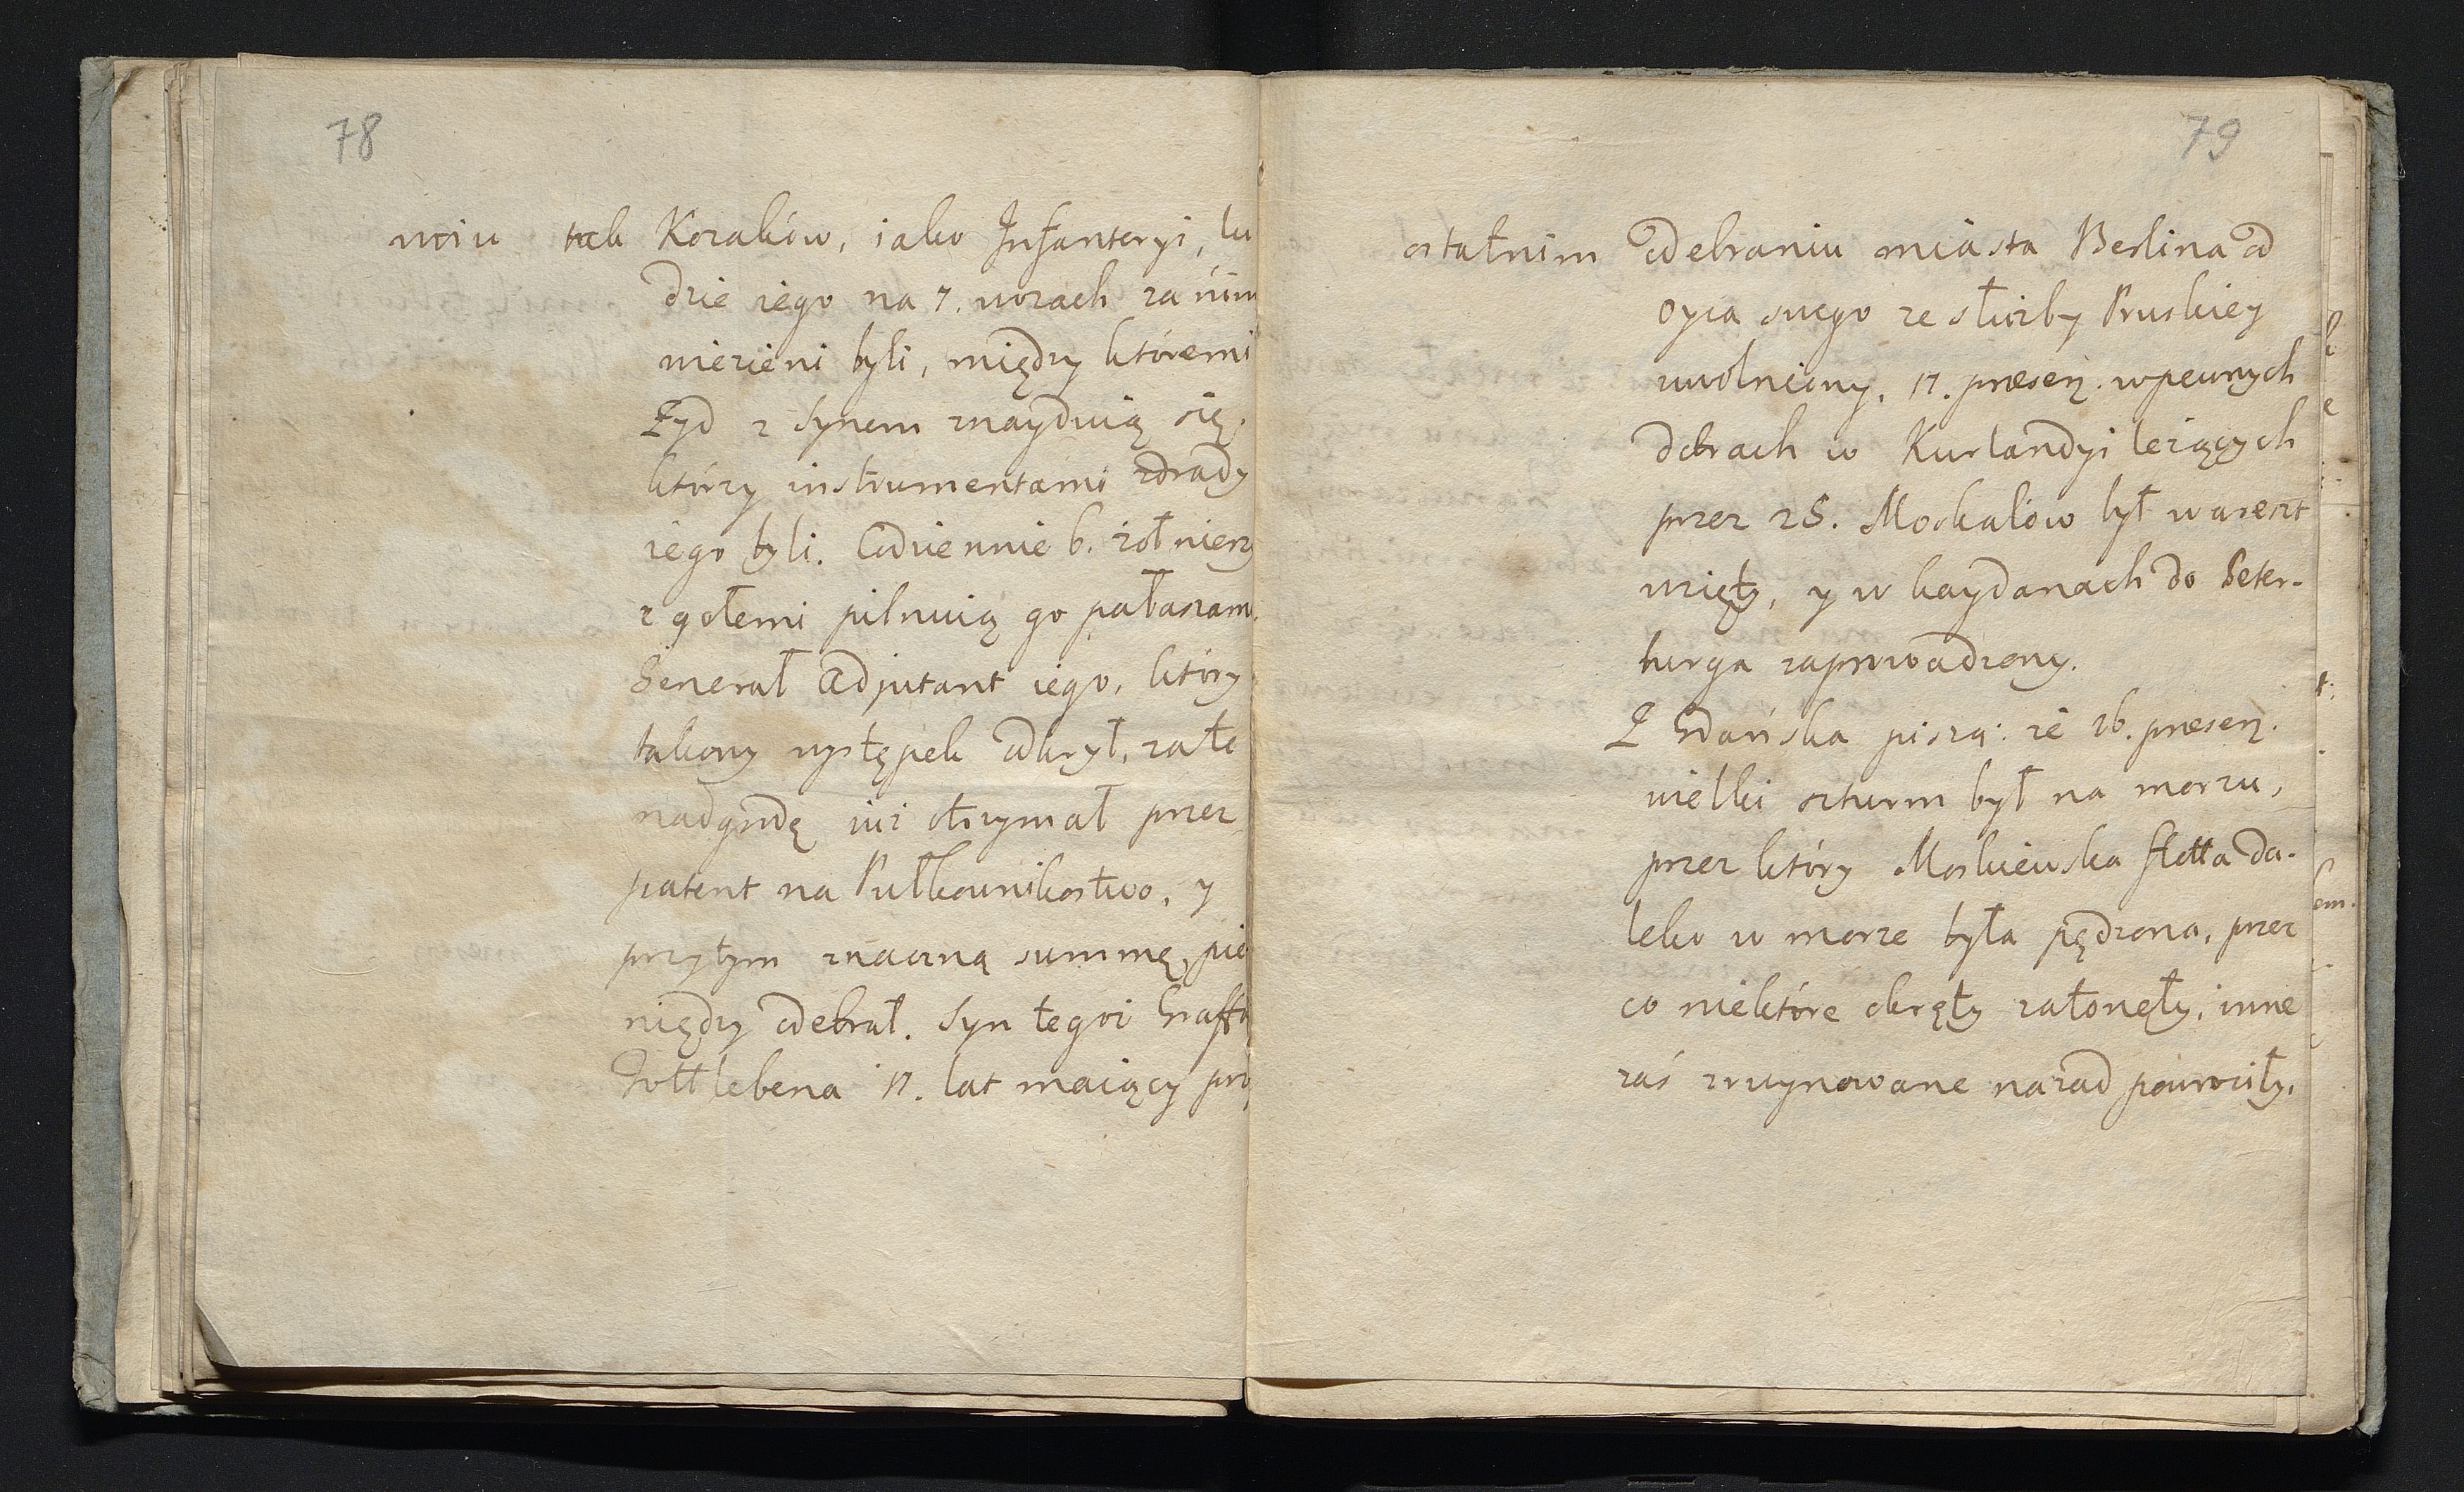 78
wciu tak Kozaków, iako Infanteryi, lu
dzie iego na 7. wozach za nim
wiezieni byli, między któremi
Żyd z Synem znayduią się,
którzy instrumentami zdrady
iego byli. Codziennie 6. żołnierzy
z gołemi pilnuią go pałaszami.
Generał Adjutant iego, który
takowy występek odkrył, za te
nadgrodę iuż otrzymał przez
patent na Pułkownikostwo, y
przytym znaczną summę pie
niędzy odebrał. Syn tegoż Graffa
Tottlebena 17. lat maiący przy
79
ostatnim odebraniu miasta Berlina od
oyca swego ze służby Pruskiey
uwolniony, 17. præsen. w pewnych
dobrach w Kurlandyi leżących
przez 25. Moskalów był w areszt
wzięty, y w kaydanach do Peter-
burga zaprowadzony.
Z Gdańska piszą: że 16. præsen.
wielki szturm był na morzu,
przez który Moskiewska flotta da-
leko w morze była pędzona, przez
co niektóre okręty zatonęły, inne
zaś zruynowane nazad powróciły.